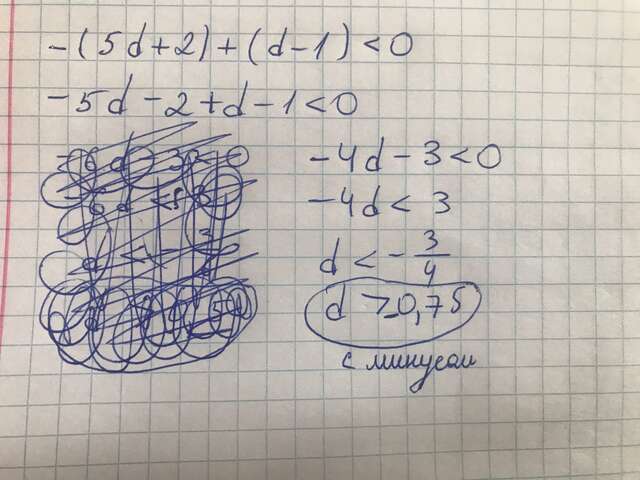 -(5d+2)+(d-1)<0
-5d-2+d-1<0
-4d-3<0
-4d<3
d<-3/4
d>-0,75
с минусом